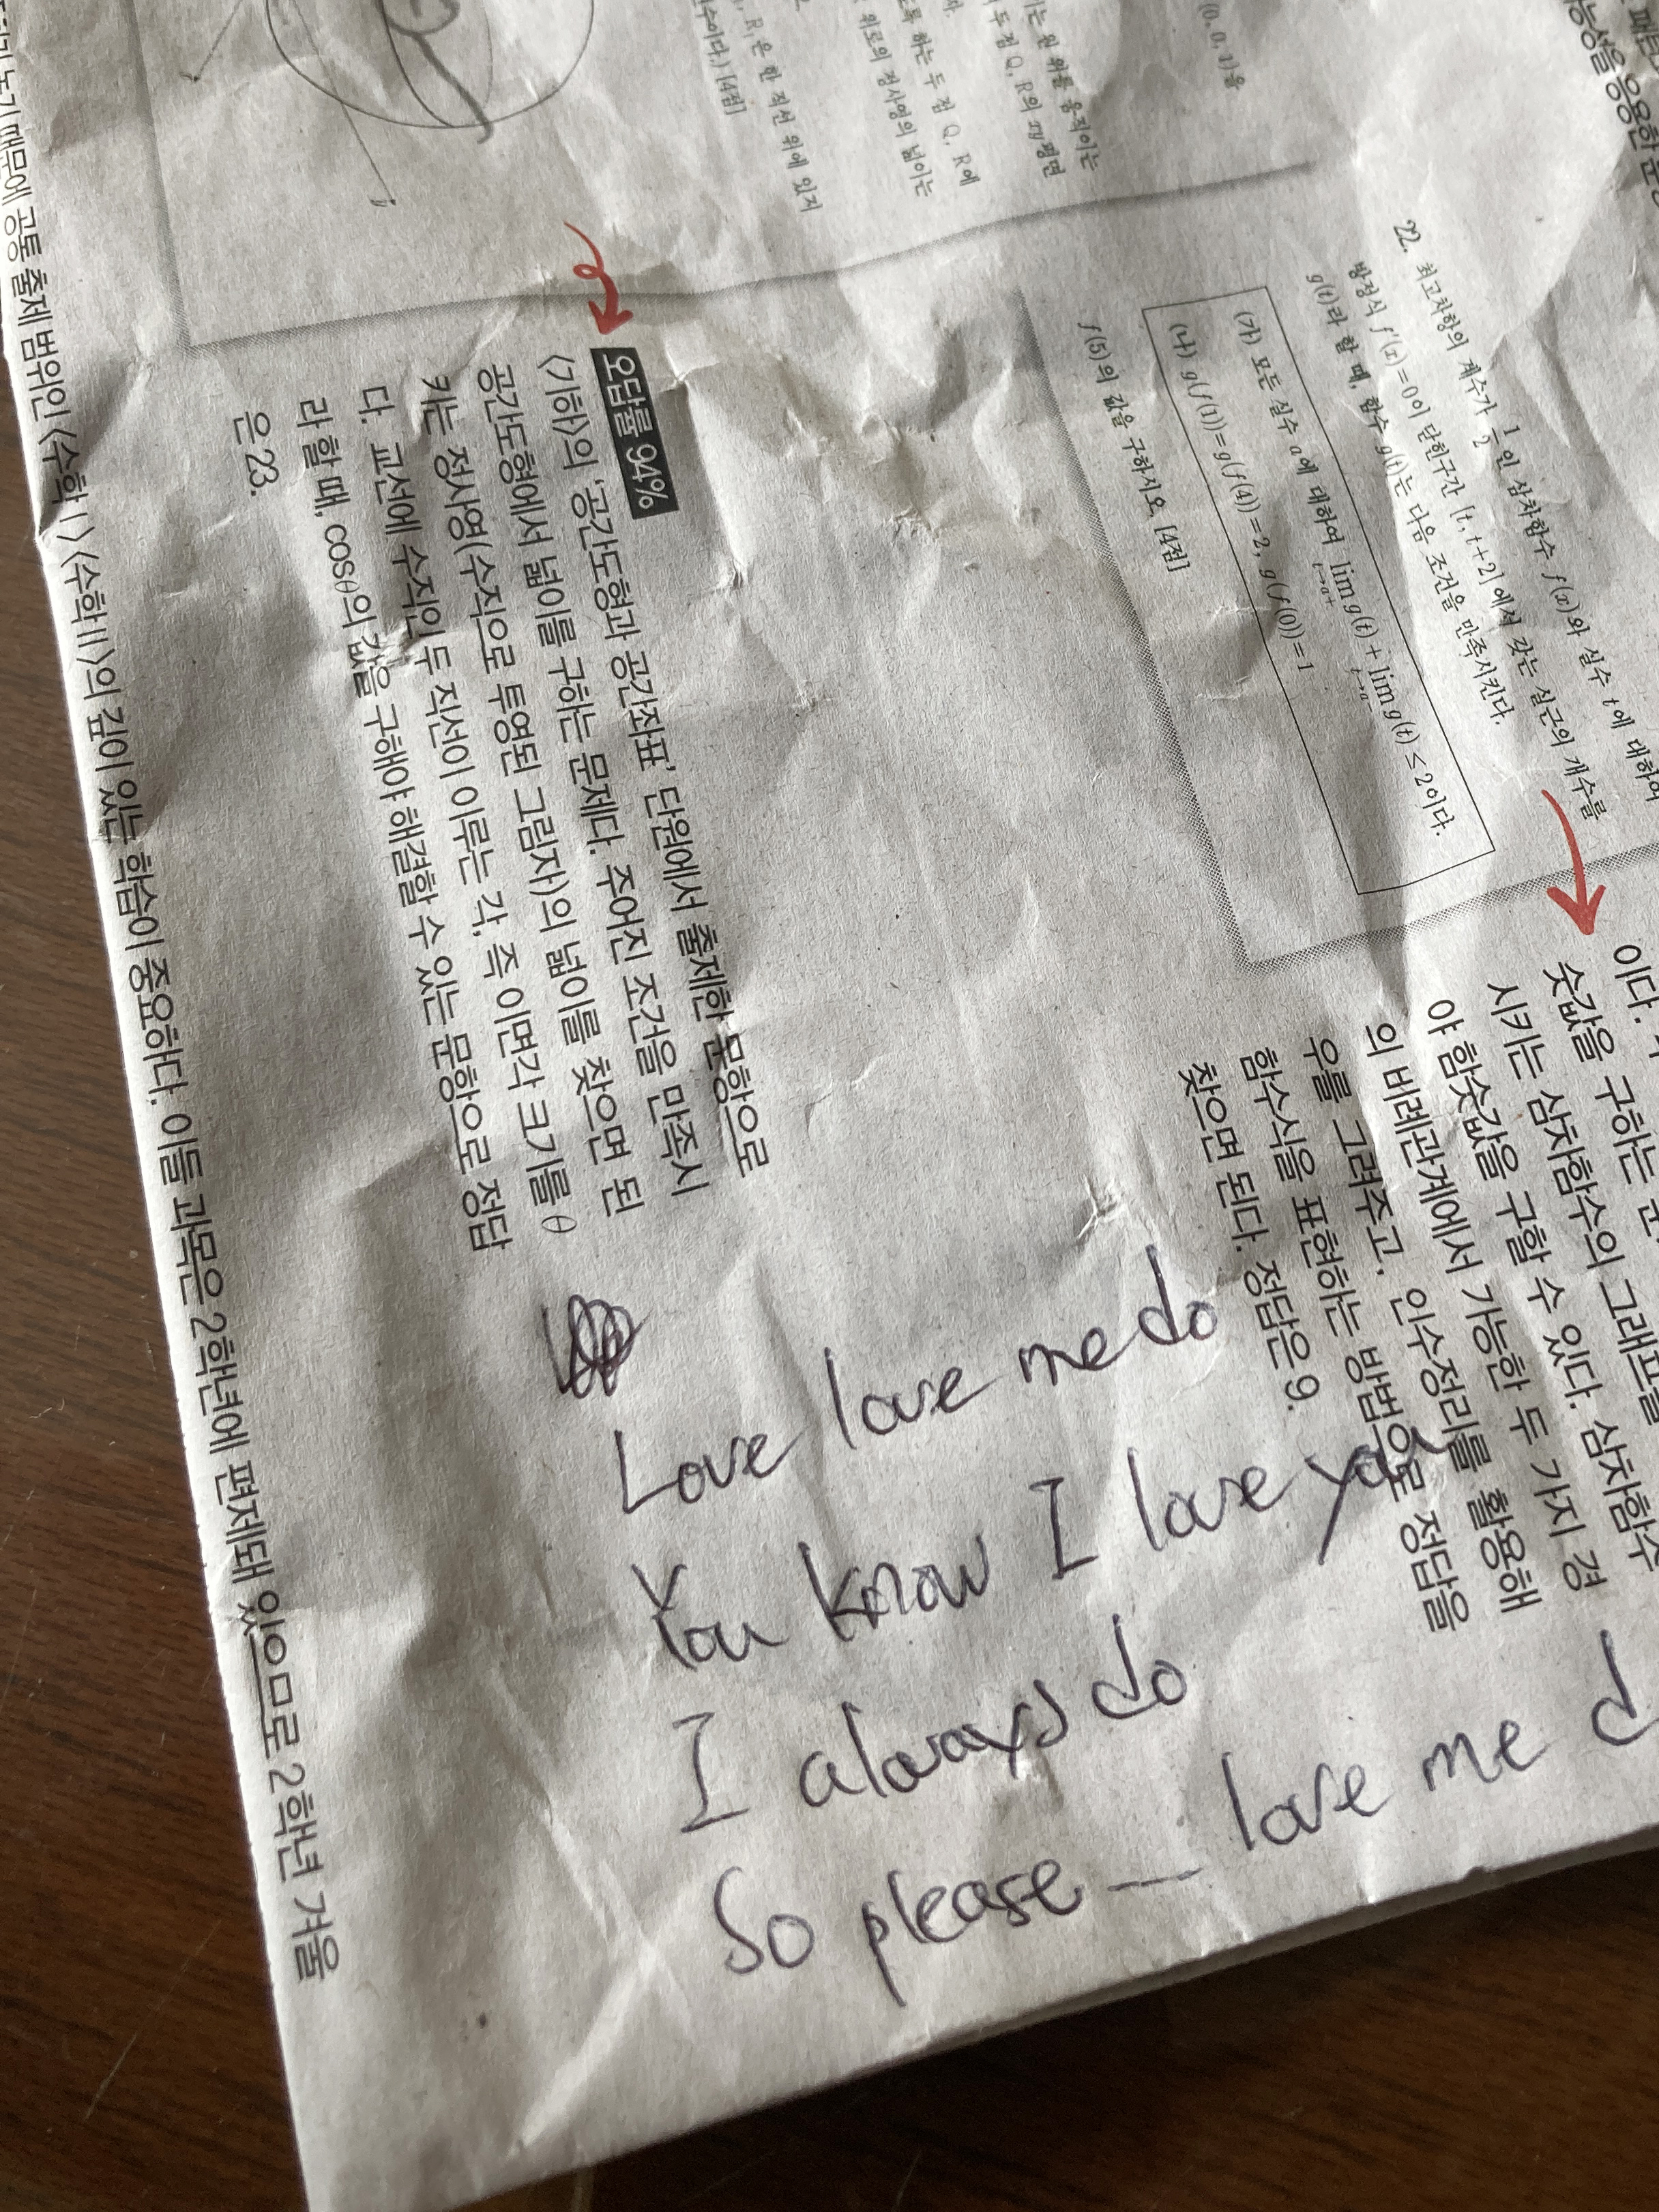 수이다.) [4점]
R, 은 한 직선 위에 있지
위로의 정사영의 넓이는
록 하는 두 점 Q, R에
두 점 Q, R의 xy평면
는 원 위를 움직이는
22. 최고차항의 계수가 1/2인 삼차함수 f(x)와 실수 t에 대하여
방정식 f′(x)=0이 닫힌구간 [t, t+2]에서 갖는 실근의 개수를
g(t)라 할 때, 함수 g(t)는 다음 조건을 만족시킨다.
(가) 모든 실수 a에 대하여 lim t→a+ g(t)+lim t→a- g(t)≤2이다.
(나) g(f(1))=g(f(4))=2, g(f(0))=1
f(5)의 값을 구하시오. [4점]
이다.
숫값을 구하는
시키는 삼차함수의 그래프를
야 함숫값을 구할 수 있다. 삼차함수
의 비례관계에서 가능한 두 가지 경
우를 그려주고, 인수정리를 활용해
함수식을 표현하는 방법으로 정답을
찾으면 된다. 정답은 9.
오답률 94%
<기하>의 '공간도형과 공간좌표' 단원에서 출제한 문항으로
공간도형에서 넓이를 구하는 문제다. 주어진 조건을 만족시
키는 정사영(수직으로 투영된 그림자)의 넓이를 찾으면 된
다. 교선에 수직인 두 직선이 이루는 각, 즉 이면각 크기를 θ
라 할 때, cosθ의 값을 구해야 해결할 수 있는 문항으로 정답
은 23.
때문에 공통 출제 범위인 <수학Ⅰ> <수학Ⅱ>의 깊이 있는 학습이 중요하다. 이들 과목은 2학년에 편제돼 있으므로 2학년 겨울
Love love me do
You know I love you
I always do
So please — love me d